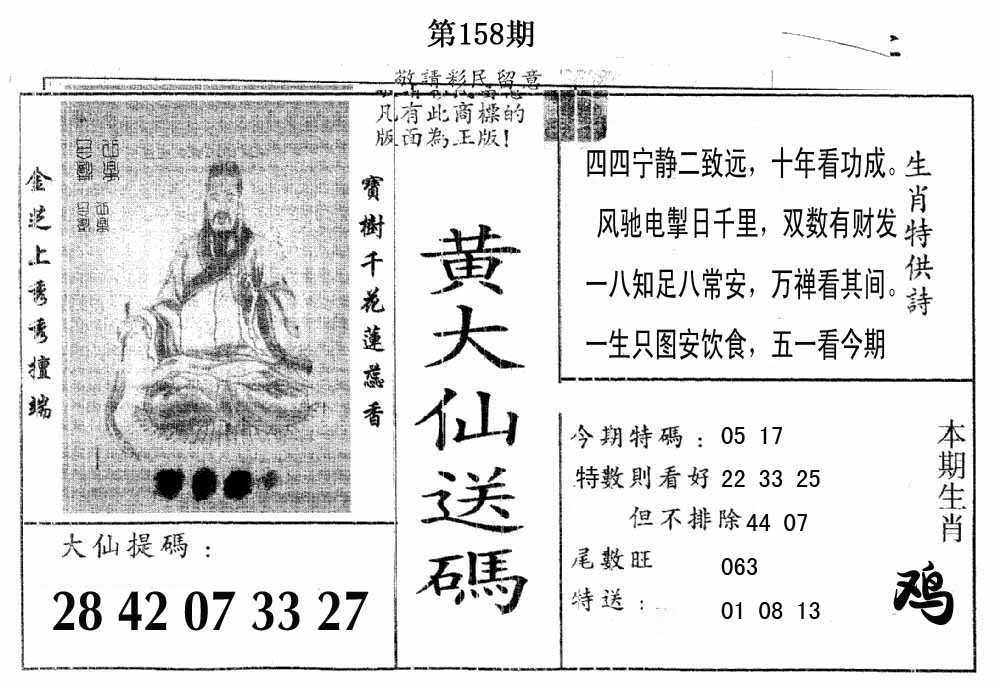 第158期
敬請彩民留意
凡有此商標的
版面為正版!
金
上
秀
端
寶樹千花蓮蕊香
黄大仙送碼
大仙提碼：
28 42 07 33 27
生肖特供詩
四四宁静二致远，十年看功成。
风驰电掣日千里，双数有财发
一八知足八常安，万禅看其间。
一生只图安饮食，五一看今期
今期特碼：05 17
特數則看好 22 33 25
但不排除 44 07
尾數旺 063
特送：01 08 13
本期生肖
鸡